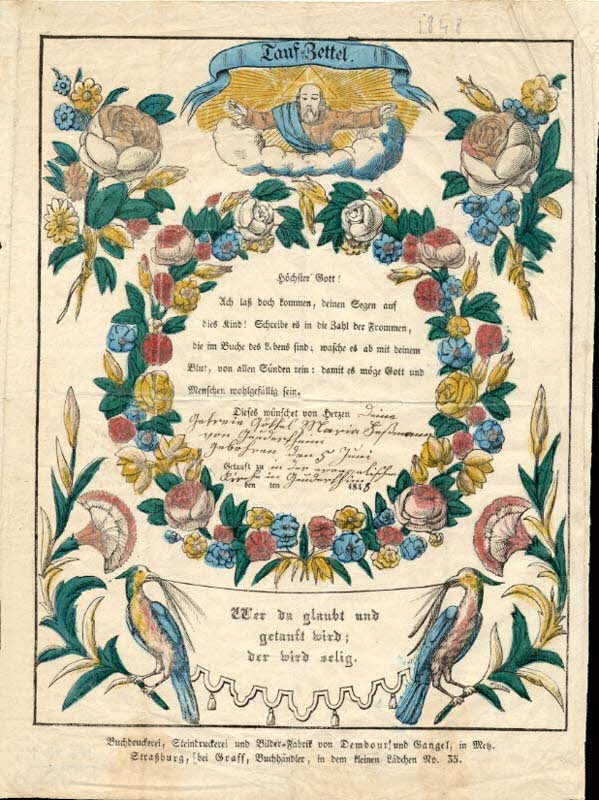 1848
Tauf-Zettel.
Höchster Gott!
Ach laß doch kommen, deinen Segen auf
dies Kind! Schreibe es in die Zahl der Frommen,
die im Buche des Lebens sind; wasche es ab mit deinem
Blut, von allen Sünden rein: damit es möge Gott und
Menschen wohlgefällig sein.
Dieses wünschet von Herzen Deine
Getreie Göttel Maria
von Geudertheim
gebohren den 5 Juni
Getauft zu in der evangelischen
Kirche in Geudertheim
den ten 1848
Wer da glaubt und
getauft wird;
der wird selig.
Buchdruckerei, Steindruckerei und Bilder-Fabrik von Dembour und Gangel, in Metz.
Straßburg, bei Graff, Buchhändler, in dem kleinen Lädchen No. 35.